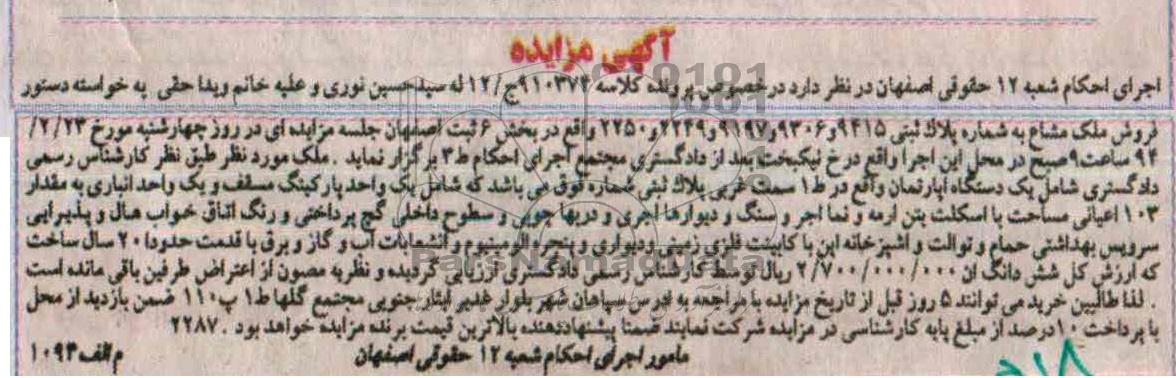 آگهی مزایده
اجرای احکام شعبه ۱۲ حقوقی اصفهان در نظر دارد در خصوص پرونده کلاسه ۹۱۰۳۷۴ ج/۱۲ له سیدحسین نوری و علیه خانم ویدا حقی به خواسته دستور
فروش ملک مشاع به شماره پلاک ثبتی ۹۴۱۵و۹۳۰۶و۹۱۹۷و۲۲۴۹و۲۲۵۰ واقع در بخش ۶ ثبت اصفهان جلسه مزایده ای در روز چهارشنبه مورخ ۲/۲۳/
۹۴ ساعت ۹ صبح در محل این اجرا واقع در خ نیکبخت بعد از دادگستری مجتمع اجرای احکام ط۳ برگزار نماید . ملک مورد نظر طبق نظر کارشناس رسمی
دادگستری شامل یک دستگاه اپارتمان واقع در ط۱ سمت غربی پلاک ثبتی شماره فوق می باشد که شامل یک واحد پارکینگ مسقف و یک واحد انباری به مقدار
۱۰۳ اعیانی مساحت با اسکلت بتن ارمه و نما اجر و سنگ و دیوارها اجری و دربها چوبی و سطوح داخلی گچ پرداختی و رنگ اتاق خواب هال و پذیرایی
سرویس بهداشتی حمام و توالت و اشپزخانه اپن با کابینت فلزی زمینی ودیواری و پنجره الومینیوم و انشعابات آب و گاز و برق با قدمت حدودا ۲۰ سال ساخت
که ارزش کل شش دانگ ان ۲/۷۰۰/۰۰۰/۰۰۰ ریال توسط کارشناس رسمی دادگستری ارزیابی گردیده و نظریه مصون از اعتراض طرفین باقی مانده است
. لذا طالبین خرید می توانند ۵ روز قبل از تاریخ مزایده با مراجعه به ادرس سپاهان شهر بلوار غدیر ایثار جنوبی مجتمع گلها ط۱ پ۱۱۰ ضمن بازدید از محل
با پرداخت ۱۰درصد از مبلغ پایه کارشناسی در مزایده شرکت نمایند ضمنا پیشنهاددهنده بالاترین قیمت برنده مزایده خواهد بود . ۲۲۸۷
مامور اجرای احکام شعبه ۱۲ حقوقی اصفهان م الف ۱۰۹۳
ParsNamadData